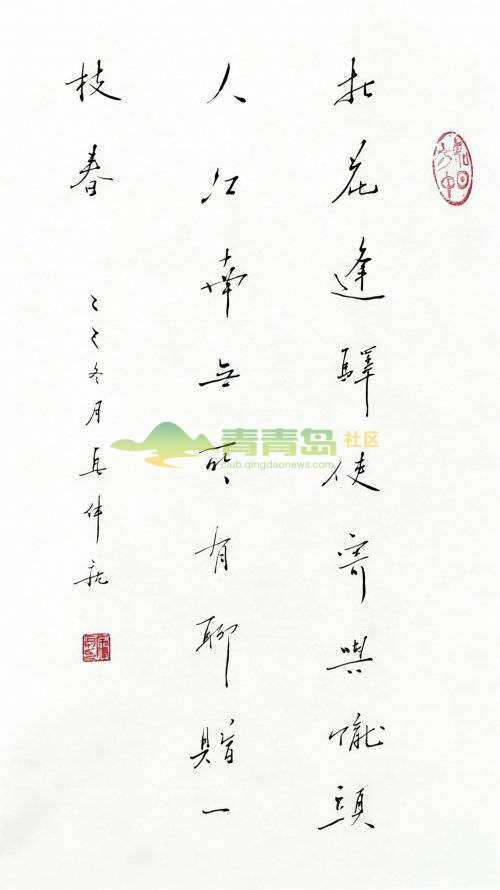 折花逢驛使寄與隴頭
人江南无所有聊贈一
枝春
冬月
青青岛社区
club.qingdaonews.com